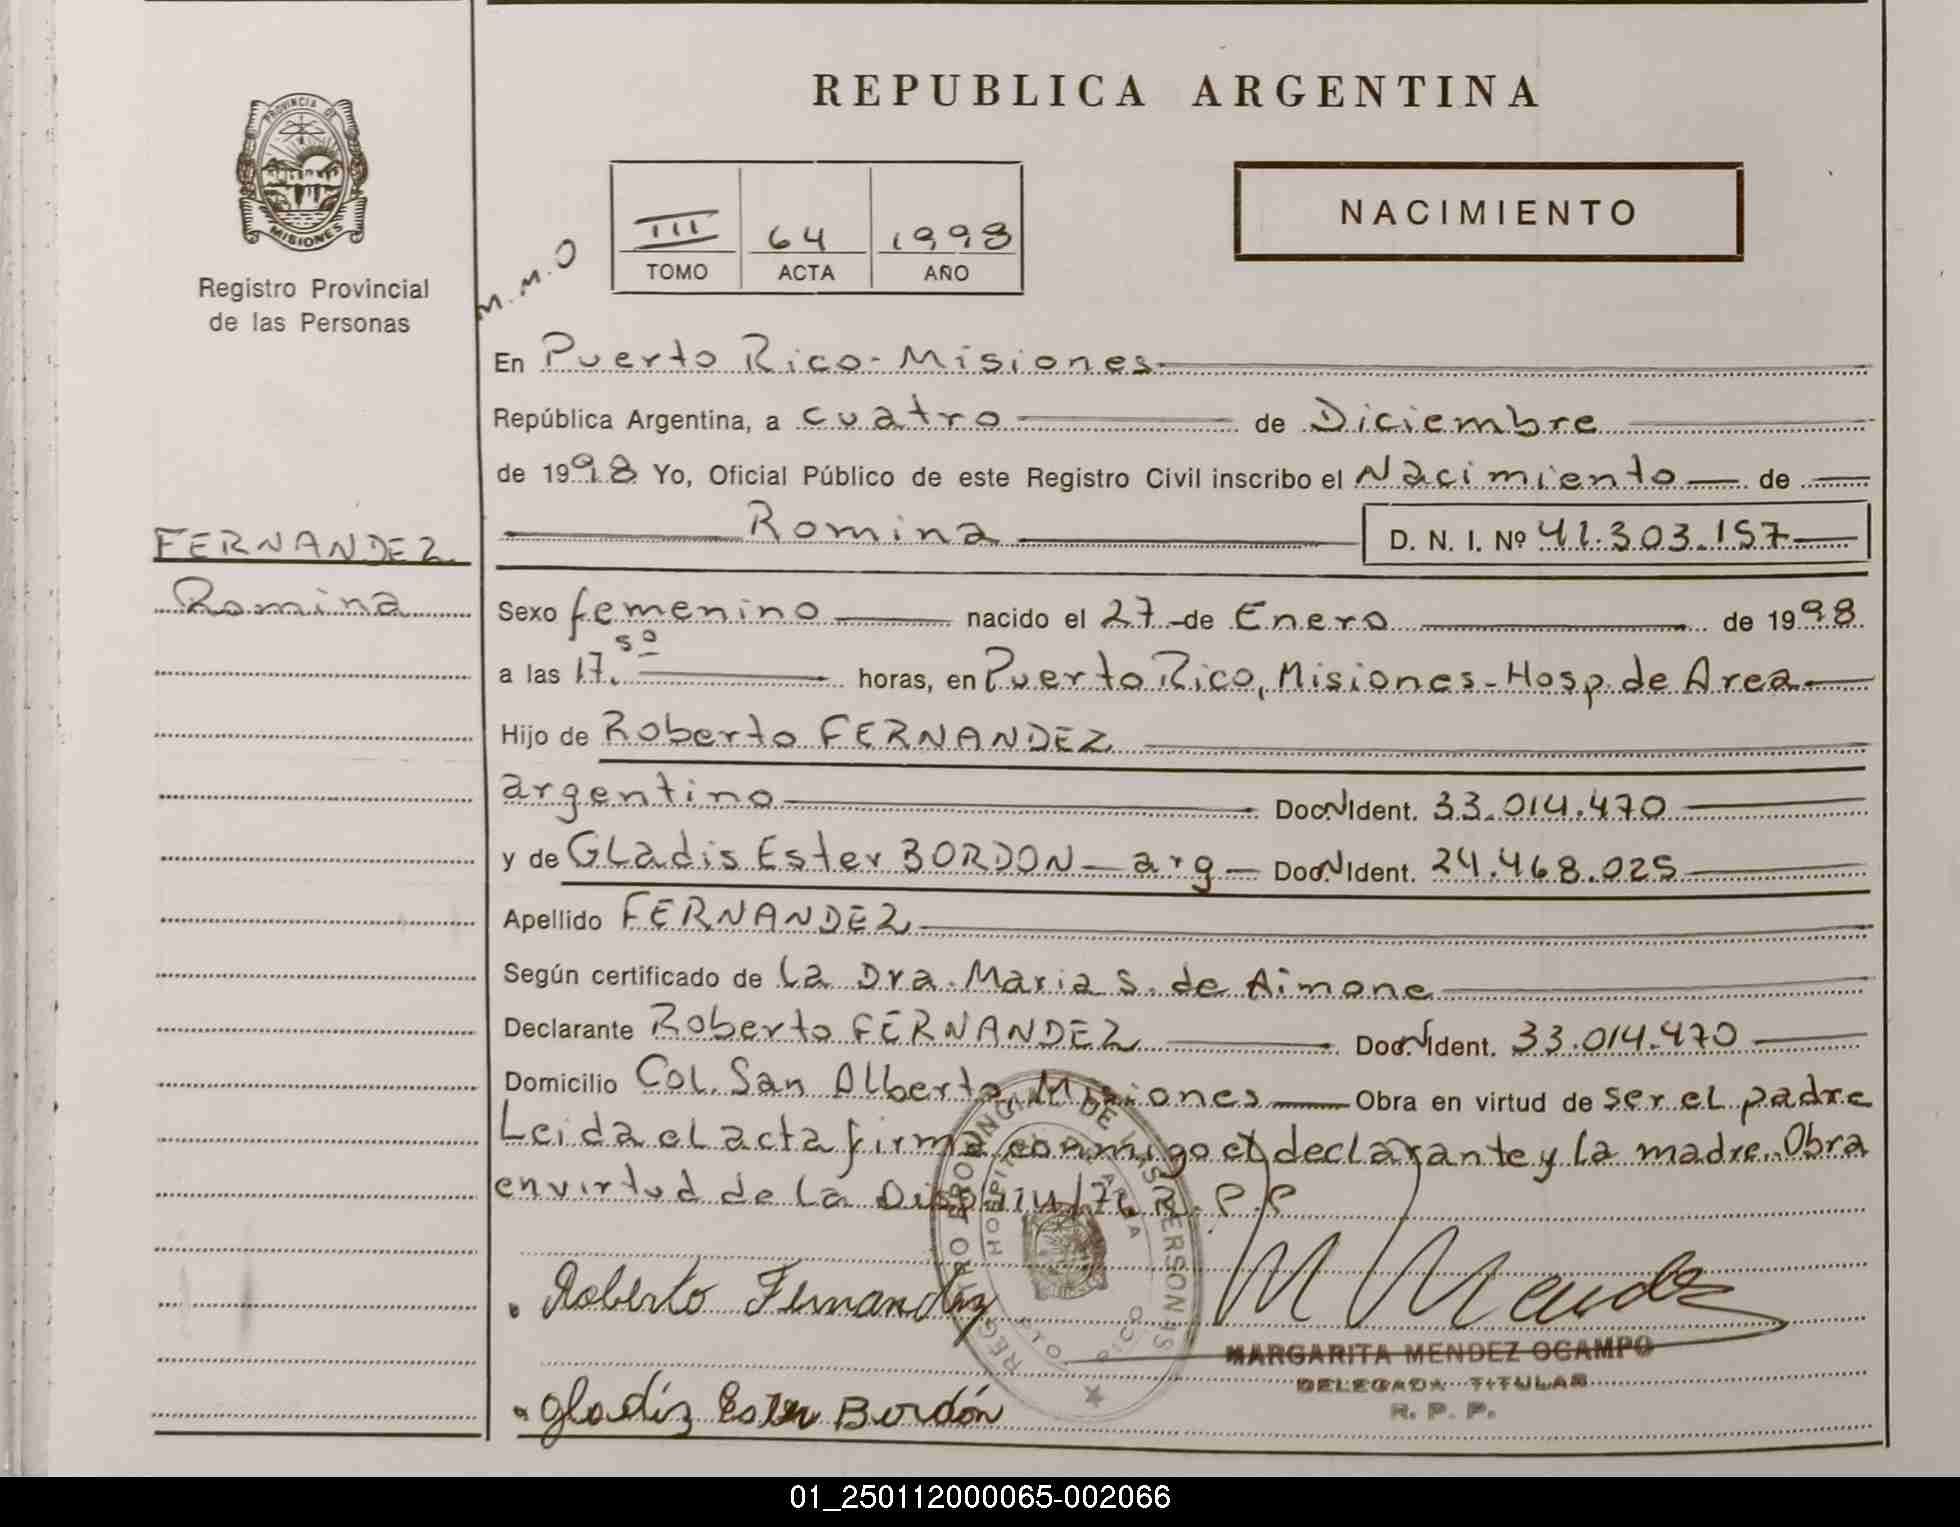 REPUBLICA ARGENTINA
PROVINCIA DE
MISIONES
Registro Provincial
de las Personas
M.M.O
III 64 1998
TOMO ACTA AÑO
NACIMIENTO
En Puerto Rico-Misiones
República Argentina, a cuatro de Diciembre
de 1998 Yo, Oficial Público de este Registro Civil inscribo el Nacimiento de
Romina D. N. I. Nº 41.303.157
FERNANDEZ
Romina
Sexo femenino nacido el 27 de Enero de 1998
a las 17.50 horas, en Puerto Rico, Misiones-Hosp. de Area
Hijo de Roberto FERNANDEZ
argentino Doc. N Ident. 33.014.470
y de GLadis Ester BORDON - arg - Doc. N Ident. 24.468.025
Apellido FERNANDEZ
Según certificado de La Dra. Maria S. de Aimone
Declarante Roberto FERNANDEZ Doc. N Ident. 33.014.470
Domicilio Col. San Alberto, Misiones Obra en virtud de ser el padre
Leida el acta firma conmigo el declarante y la madre. Obra
en virtud de la R.P.P
REGISTRO PROVINCIAL DE LAS PERSONAS
HOSPITAL AREA
PTO RICO
Roberto Fernandez
M Mendez
MARGARITA MENDEZ OCAMPO
DELEGADA TITULAR
R. P. P.
Gladiz Ester Bordón
01_250112000065-002066